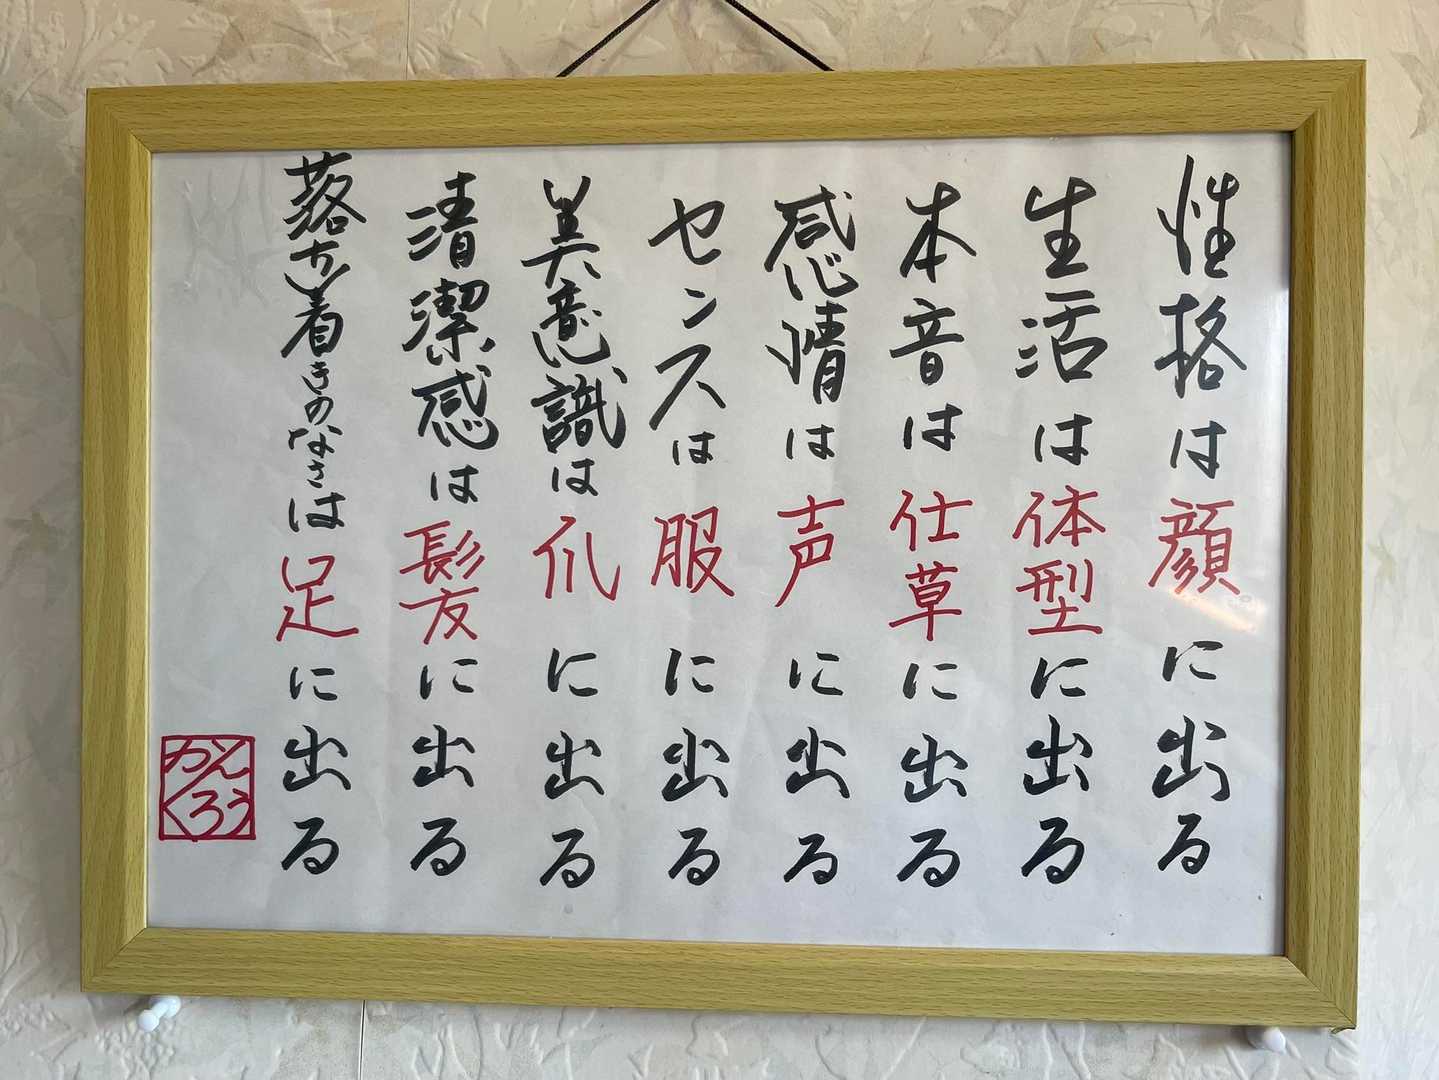 性格は顔に出る
生活は体型に出る
本音は仕草に出る
感情は声に出る
センスは服に出る
美意識は爪に出る
清潔感は髪に出る
落ち着きのなさは足に出る
かん
くろう